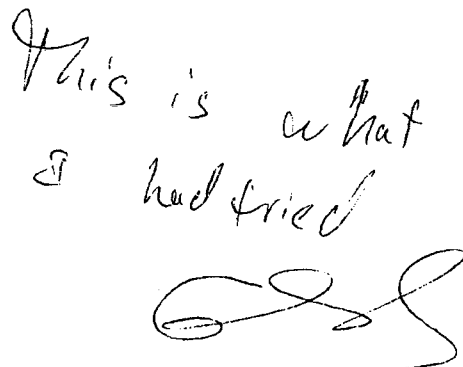 This is what
I had tried